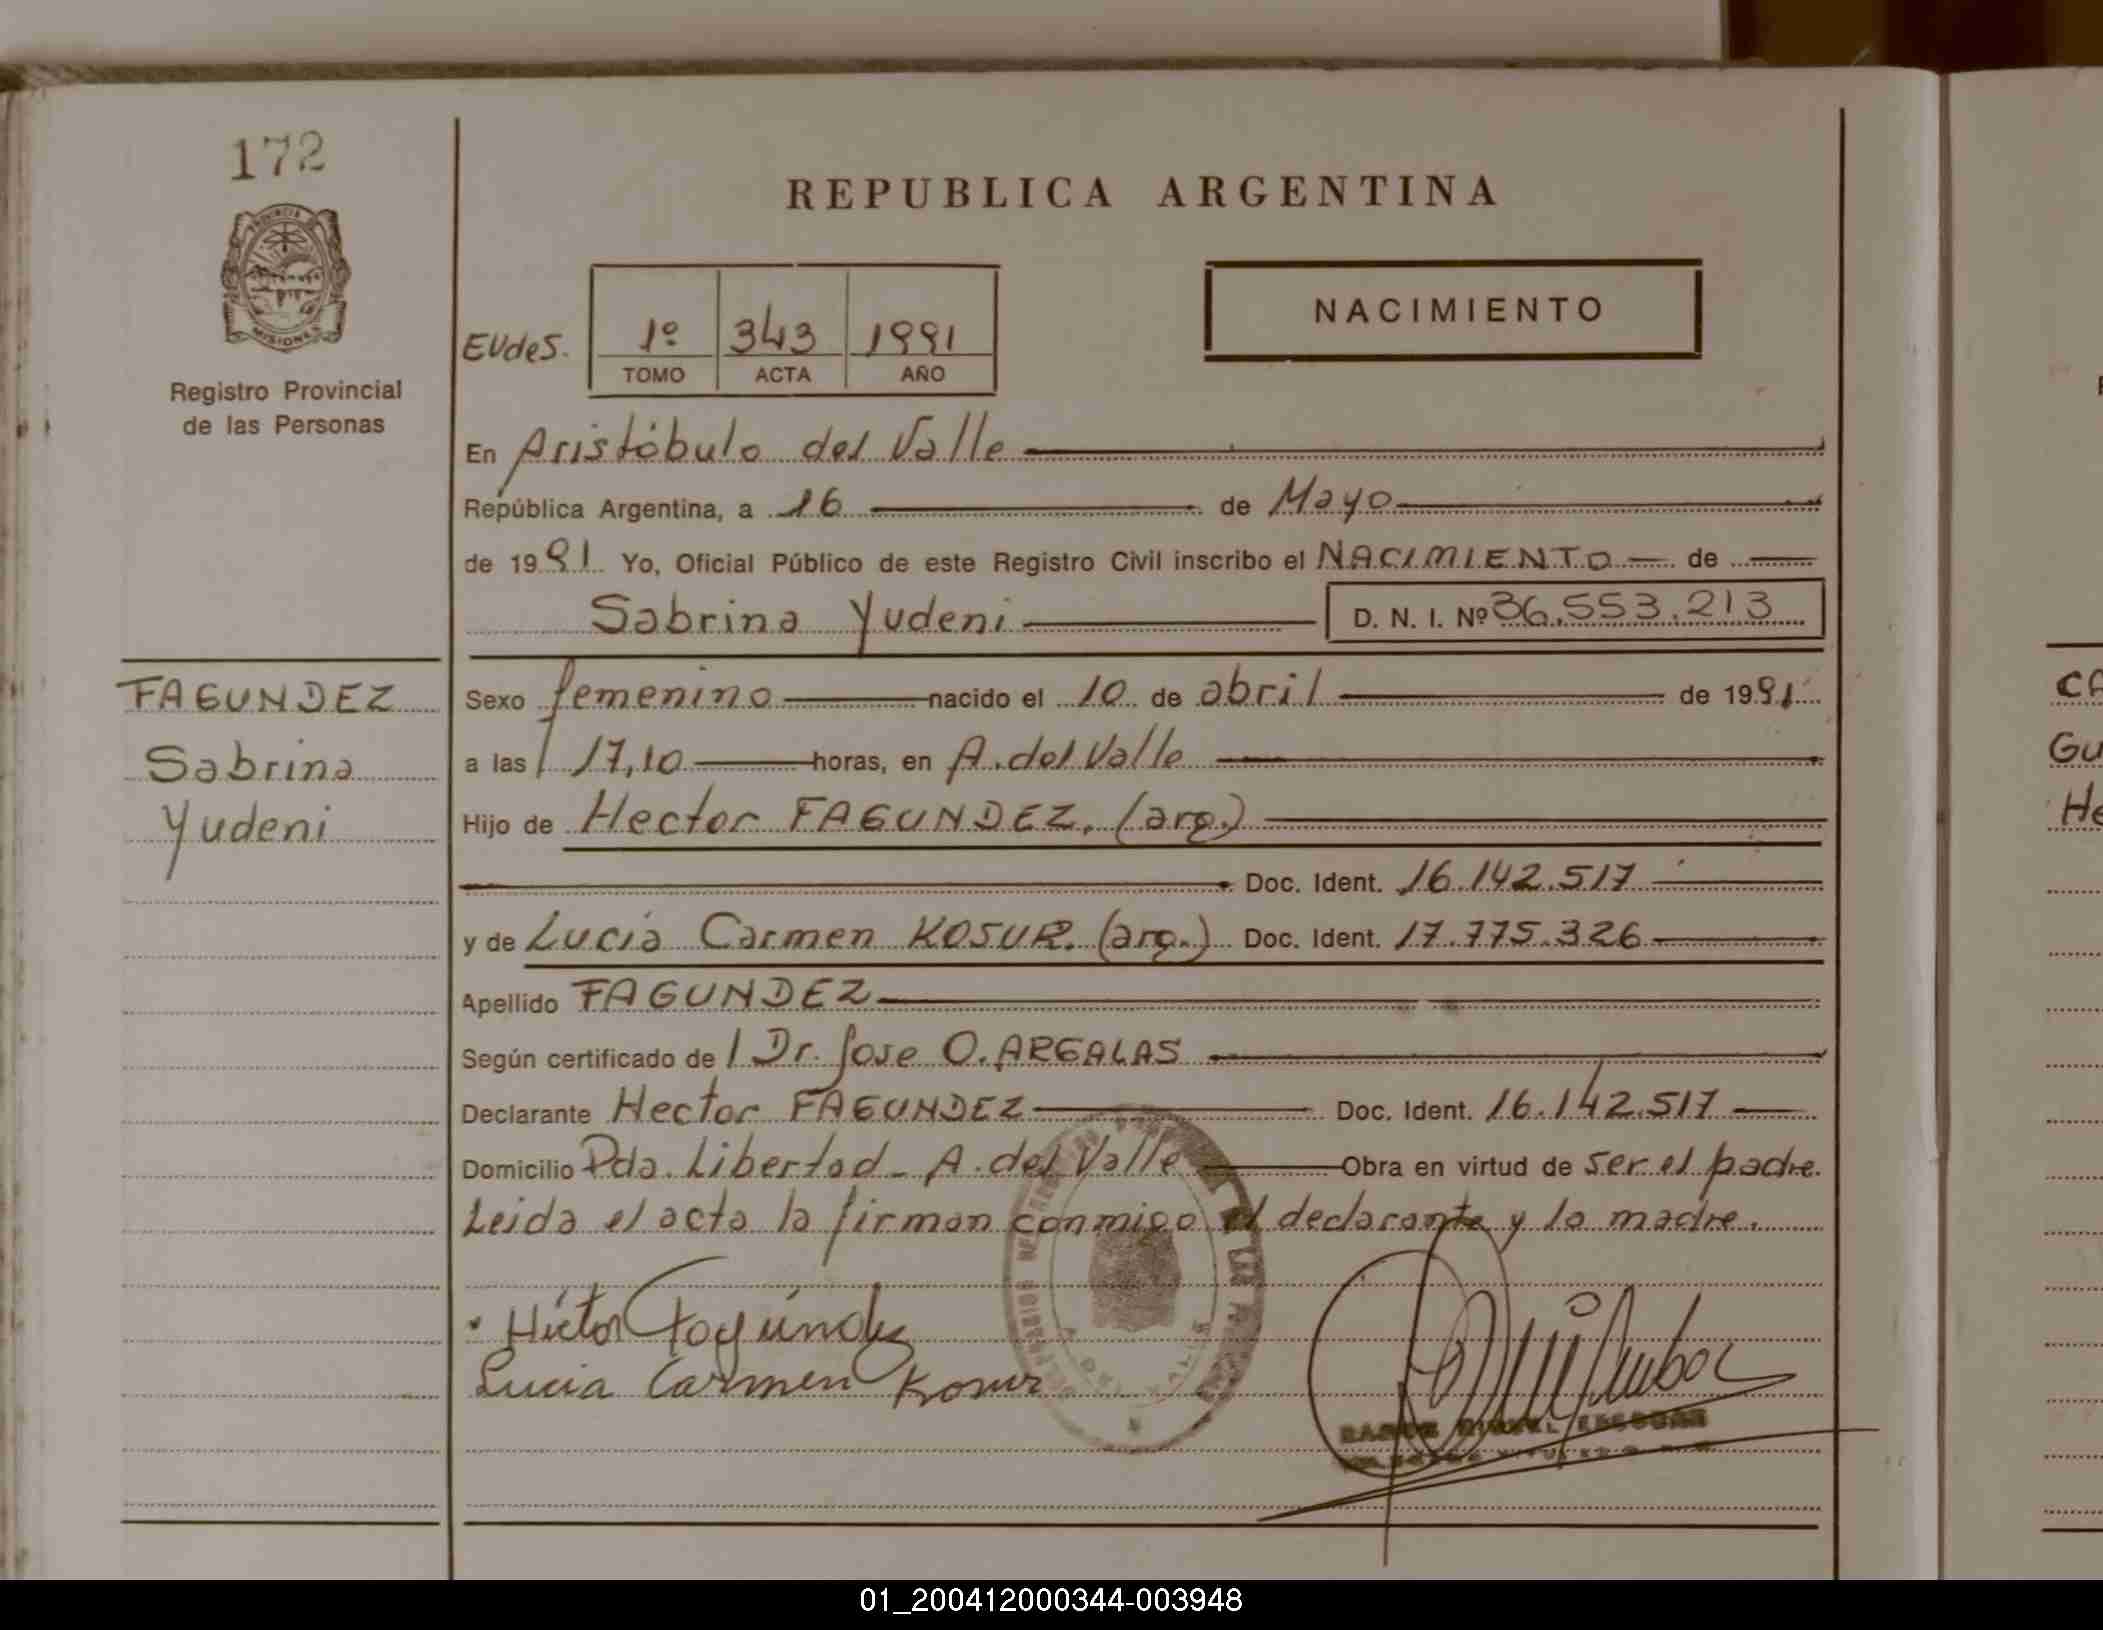 172
PROVINCIA D
MISIONES
Registro Provincial
de las Personas
REPUBLICA ARGENTINA
NACIMIENTO
EUdeS. 1º 343 1991
TOMO ACTA AÑO
En Aristóbulo del Valle
República Argentina, a 16 de Mayo
de 1991 Yo, Oficial Público de este Registro Civil inscribo el NACIMIENTO de
Sabrina Yudeni D. N. I. Nº 36.553.213
FAGUNDEZ
Sabrina
Yudeni
Sexo femenino nacido el 10 de abril de 1991
a las 17,10 horas, en A. del Valle
Hijo de Hector FAGUNDEZ. (arg.)
Doc. Ident. 16.142.517
y de Lucia Carmen KOSUR. (arg.) Doc. Ident. 17.775.326
Apellido FAGUNDEZ
Según certificado de Dr. Jose O. ARGALAS
Declarante Hector FAGUNDEZ Doc. Ident. 16.142.517
Domicilio Pda. Libertad - A. del Valle Obra en virtud de ser el padre.
Leida el acta la firman conmigo el declarante y la madre.
Héctor Fagúndez
Lucia Carmen Kosur
MIGUEL ESCOBAR
CA
Gu
He
01_200412000344-003948